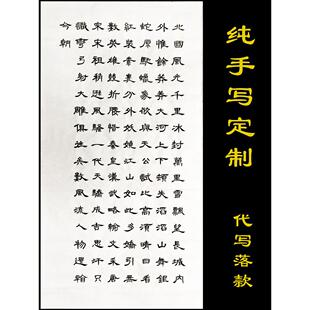 北國風光千里冰封萬里雪飄望長城内
外惟餘莽莽大河上下頓失滔滔山舞銀
蛇原馳蠟象欲與天公試比高須晴日看
紅裝素裹分外妖嬈江山如此多嬌引無
數英雄競折腰惜秦皇漢武略輸文采唐
宗宋祖稍遜風騷一代天驕成吉思汗只
識彎弓射大雕俱往矣數風流人物還看
今朝
纯手写定制
代写落款